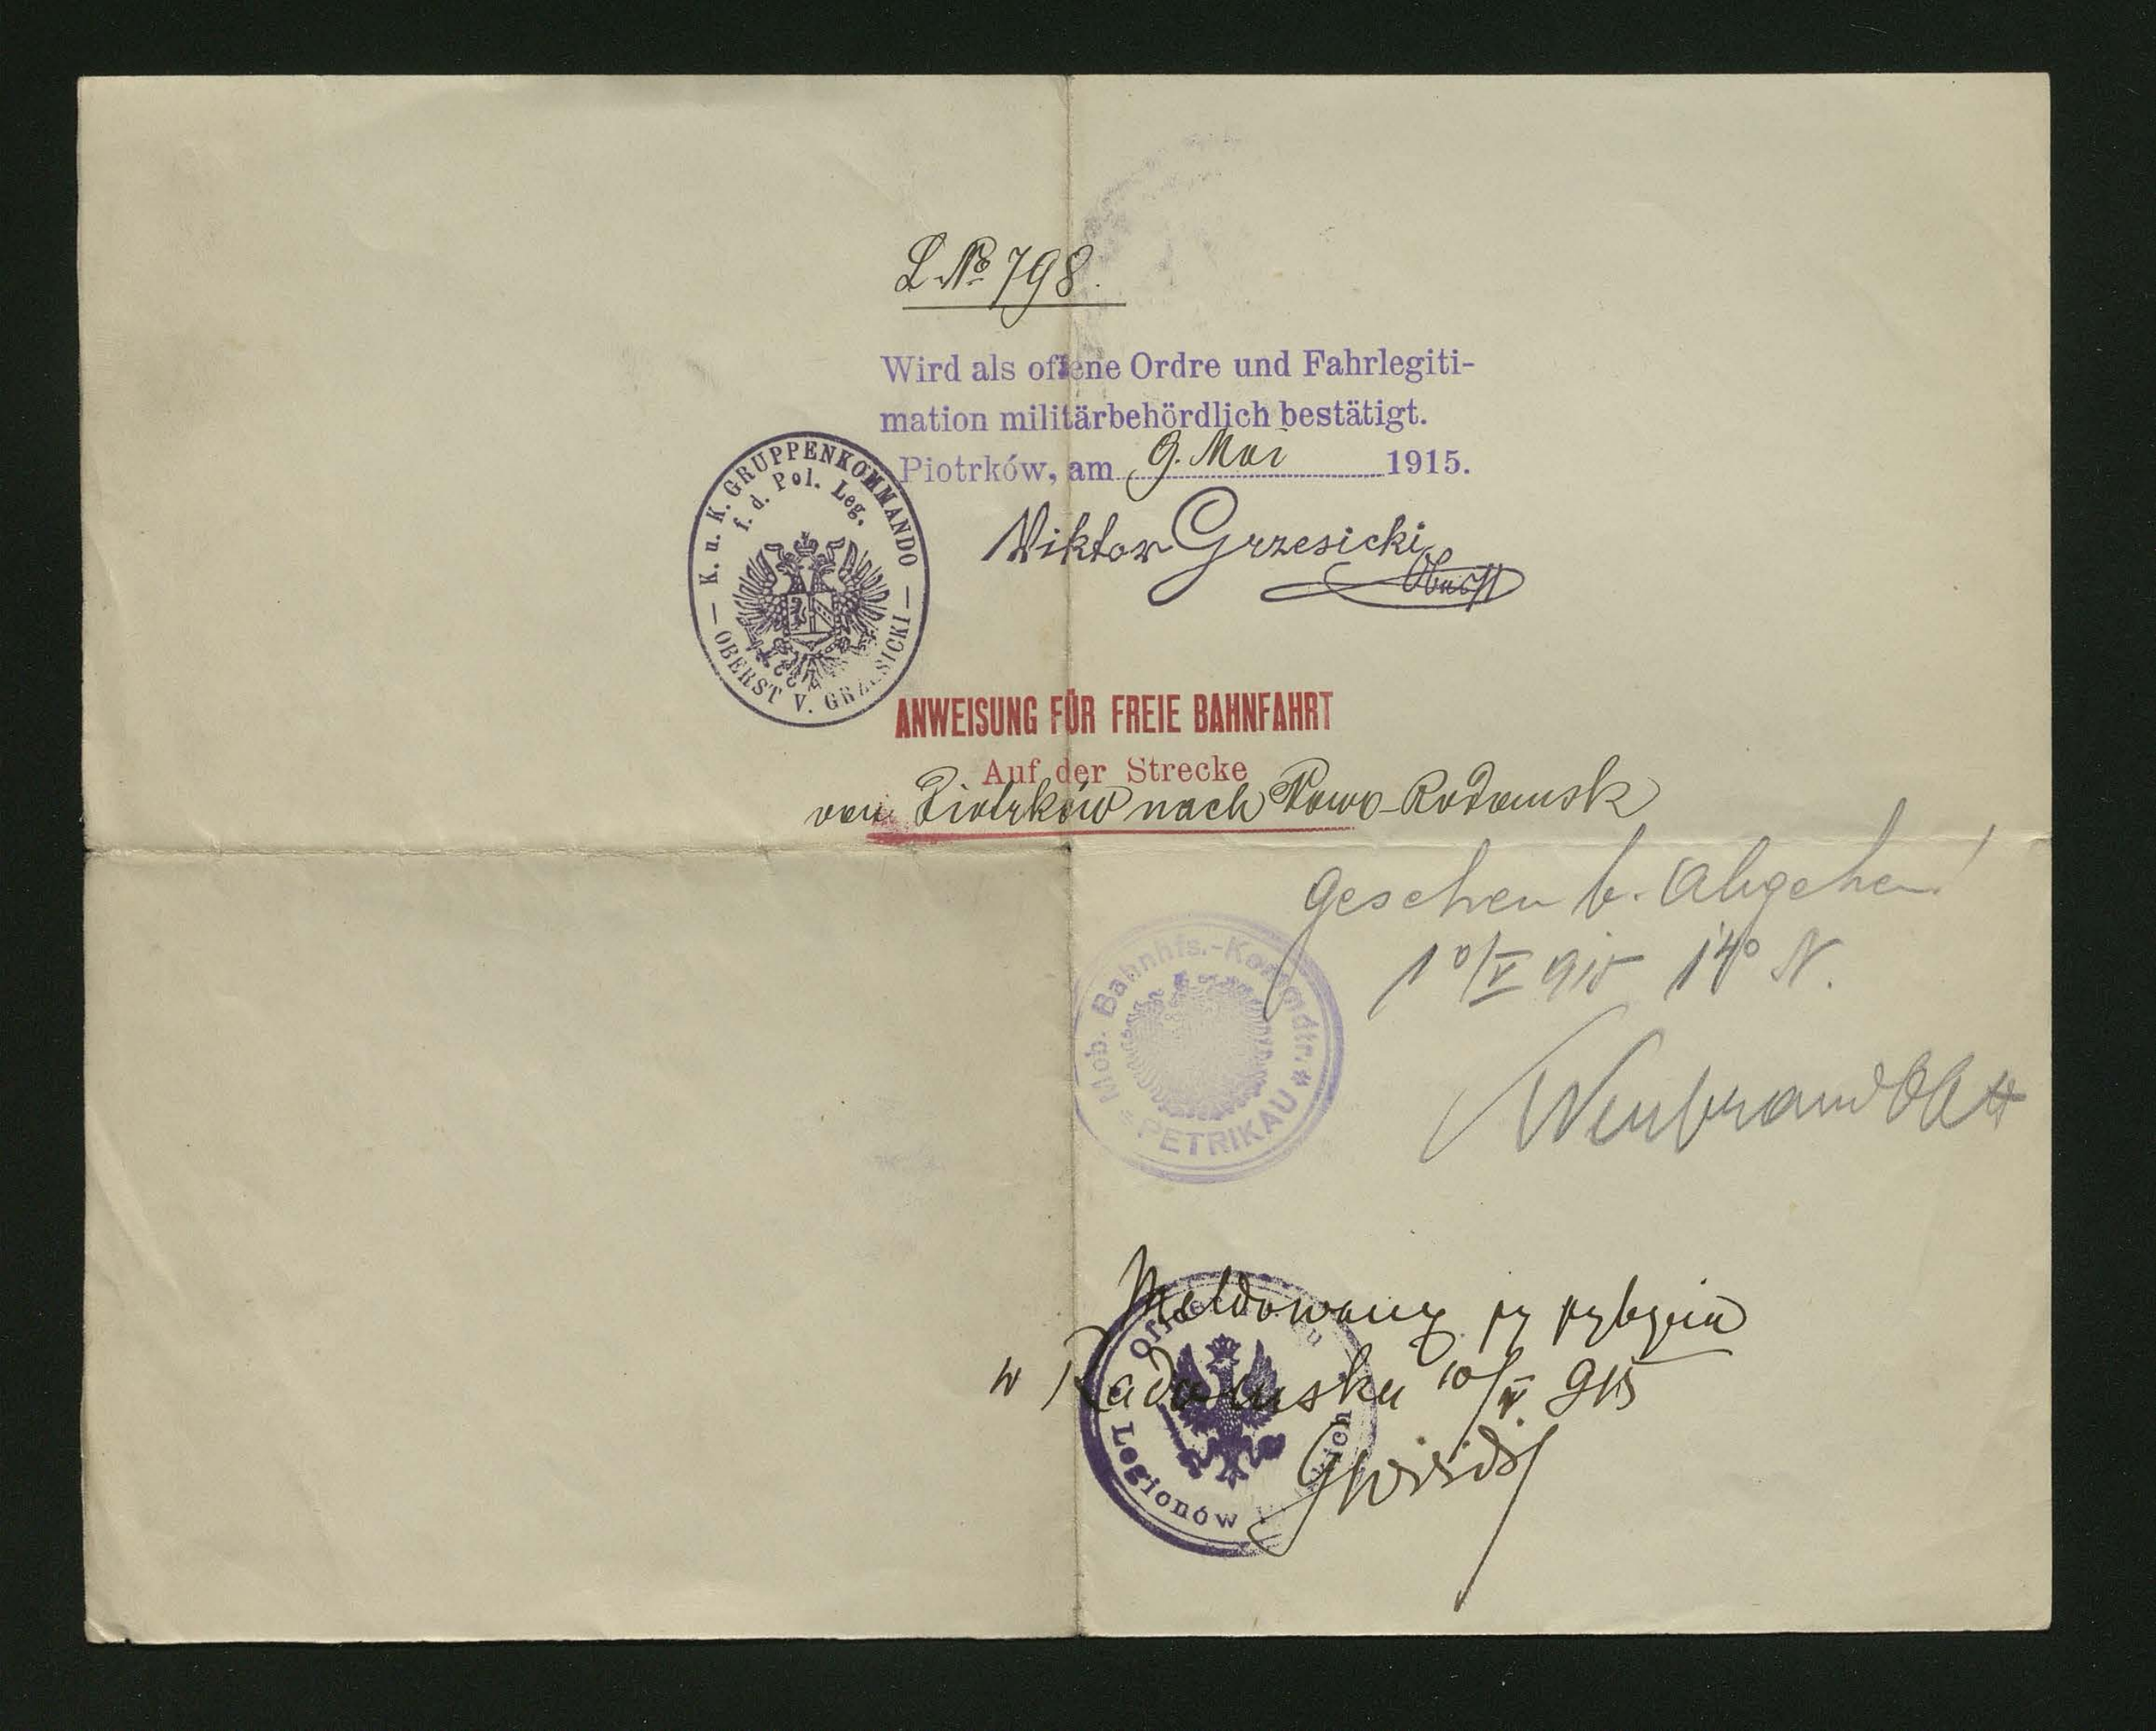 L. № 798.
Wird als offene Ordre und Fahrlegiti-
mation militärbehördlich bestätigt.
Piotrków, am 9. Mai 1915.
Viktor Grzesicki
Oberst
K. u. K. GRUPPENKOMMANDO
f. d. Pol. Leg.
OBERST V. GRZESICKI
ANWEISUNG FÜR FREIE BAHNFAHRT
Auf der Strecke
von Piotrków nach Nowo-Radomsk
Gesehen b. Abgehen!
10/V 915 140 N.
Mob. Bahnhfs.-Kommdtr.
PETRIKAU
Meldowany przy przybyciu
w Radomsku 10/V 915
Legionów